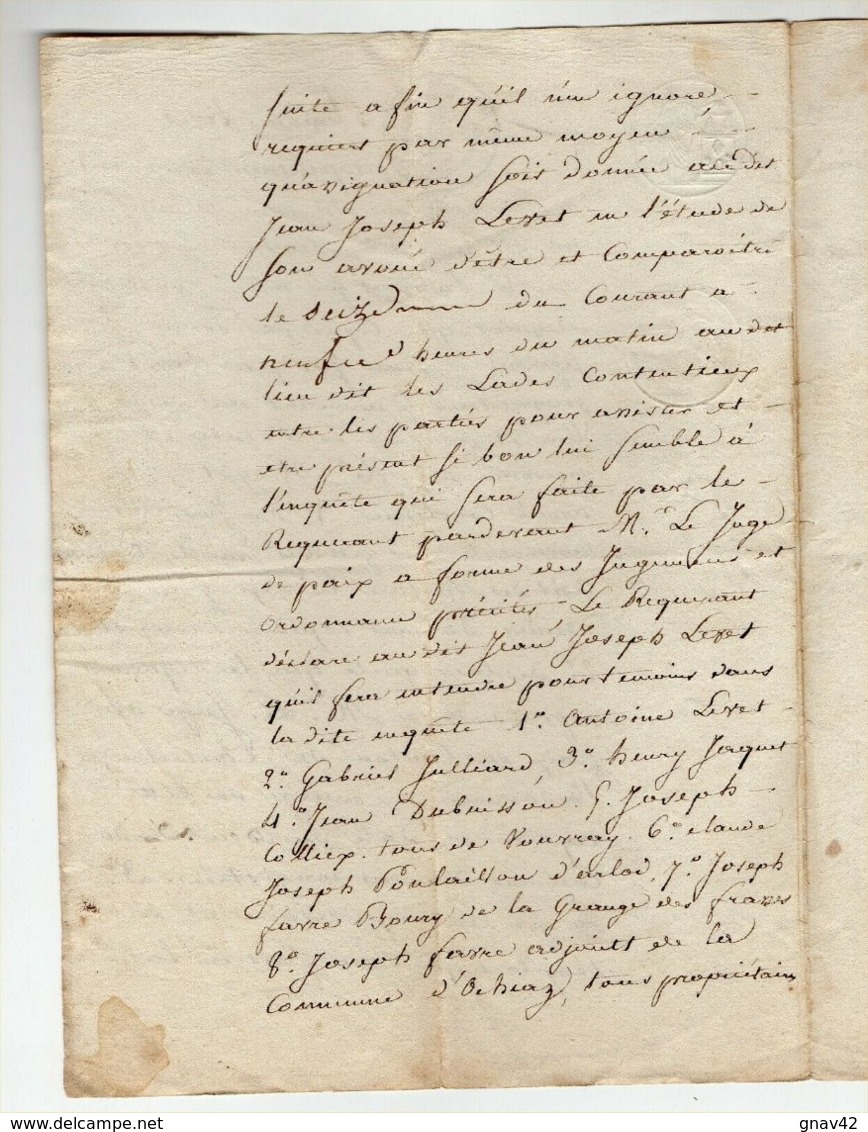 suite afin qu'il n'en ignore
requiert par même moyen
qu'assignation soit donnée audit
Jean Joseph Levet en l'étude de
son avoué d'être et comparoitre
le seize du courant a
neuf heures du matin audit
lieu dit les Lades contentieux
entre les parties pour assister et
etre présent si bon lui semble à
l'enquête qui sera faite par le
Requerant pardevant Mr. Le Juge
de paix a forme des Jugemens et
ordonnance précités. Le Requerant
déclare audit Jean Joseph Levet
qu'il fera entendre pour temoins dans
la dite enquête 1o. Antoine Levet
2o. Gabriel Julliard, 3o. henry Jaquet
4.o Jean Dubuisson. 5. Joseph
Colliex. tous de Vouvray. 6o. claude
Joseph Ponlaillon d'arlod, 7.o Joseph
favre Boury de la Grange des frasses
8.o Joseph favre adjoint de la
Commune d'Ochiaz, tous propriétaires
gnav42